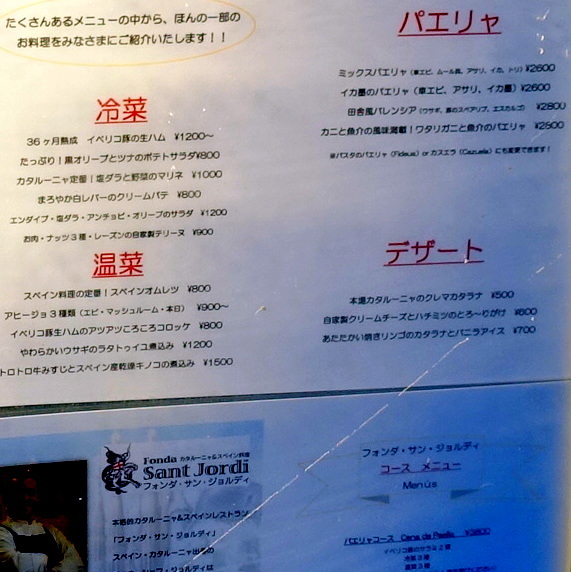 たくさんあるメニューの中から、ほんの一部の
お料理をみなさまにご紹介いたします！！
冷菜
36ヶ月熟成　イベリコ豚の生ハム　¥1200〜
たっぷり！黒オリーブとツナのポテトサラダ¥800
カタルーニャ定番！塩ダラと野菜のマリネ　¥1000
まろやか白レバーのクリームパテ　¥800
エンダイブ・塩ダラ・アンチョビ・オリーブのサラダ　¥1200
お肉・ナッツ3種・レーズンの自家製テリーヌ　¥900
温菜
スペイン料理の定番！スペインオムレツ　¥800
アヒージョ3種類（エビ・マッシュルーム・本日）　¥900〜
イベリコ豚生ハムのアツアツころころコロッケ　¥800
やわらかいウサギのラタトゥイユ煮込み　¥1200
トロトロ牛みすじとスペイン産乾燥キノコの煮込み　¥1500
パエリャ
ミックスパエリャ（車エビ、ムール貝、アサリ、イカ、トリ）¥2600
イカ墨のパエリャ（車エビ、アサリ、イカ墨）¥2600
田舎風バレンシア（ウサギ、豚のスペアリブ、エスカルゴ）　¥2800
カニと魚介の風味満載！ワタリガニと魚介のパエリャ　¥2500
※パスタのパエリャ（Fideua）or カスエラ（Cazuela）にも変更できます！
デザート
本場カタルーニャのクレマカタラナ　¥500
自家製クリームチーズとハチミツのとろ〜りがけ　¥600
あたたかい焼きリンゴのカタラナとバニラアイス　¥700
Fonda カタルーニャ&スペイン料理
Sant Jordi
フォンダ・サン・ジョルディ
本格的カタルーニャ&スペインレストラン
「フォンダ・サン・ジョルディ」
スペイン・カタルーニャ出身の
フォンダ・サン・ジョルディ
コース　メニュー
Menús
パエリャコース　Cena de Paella　¥3800